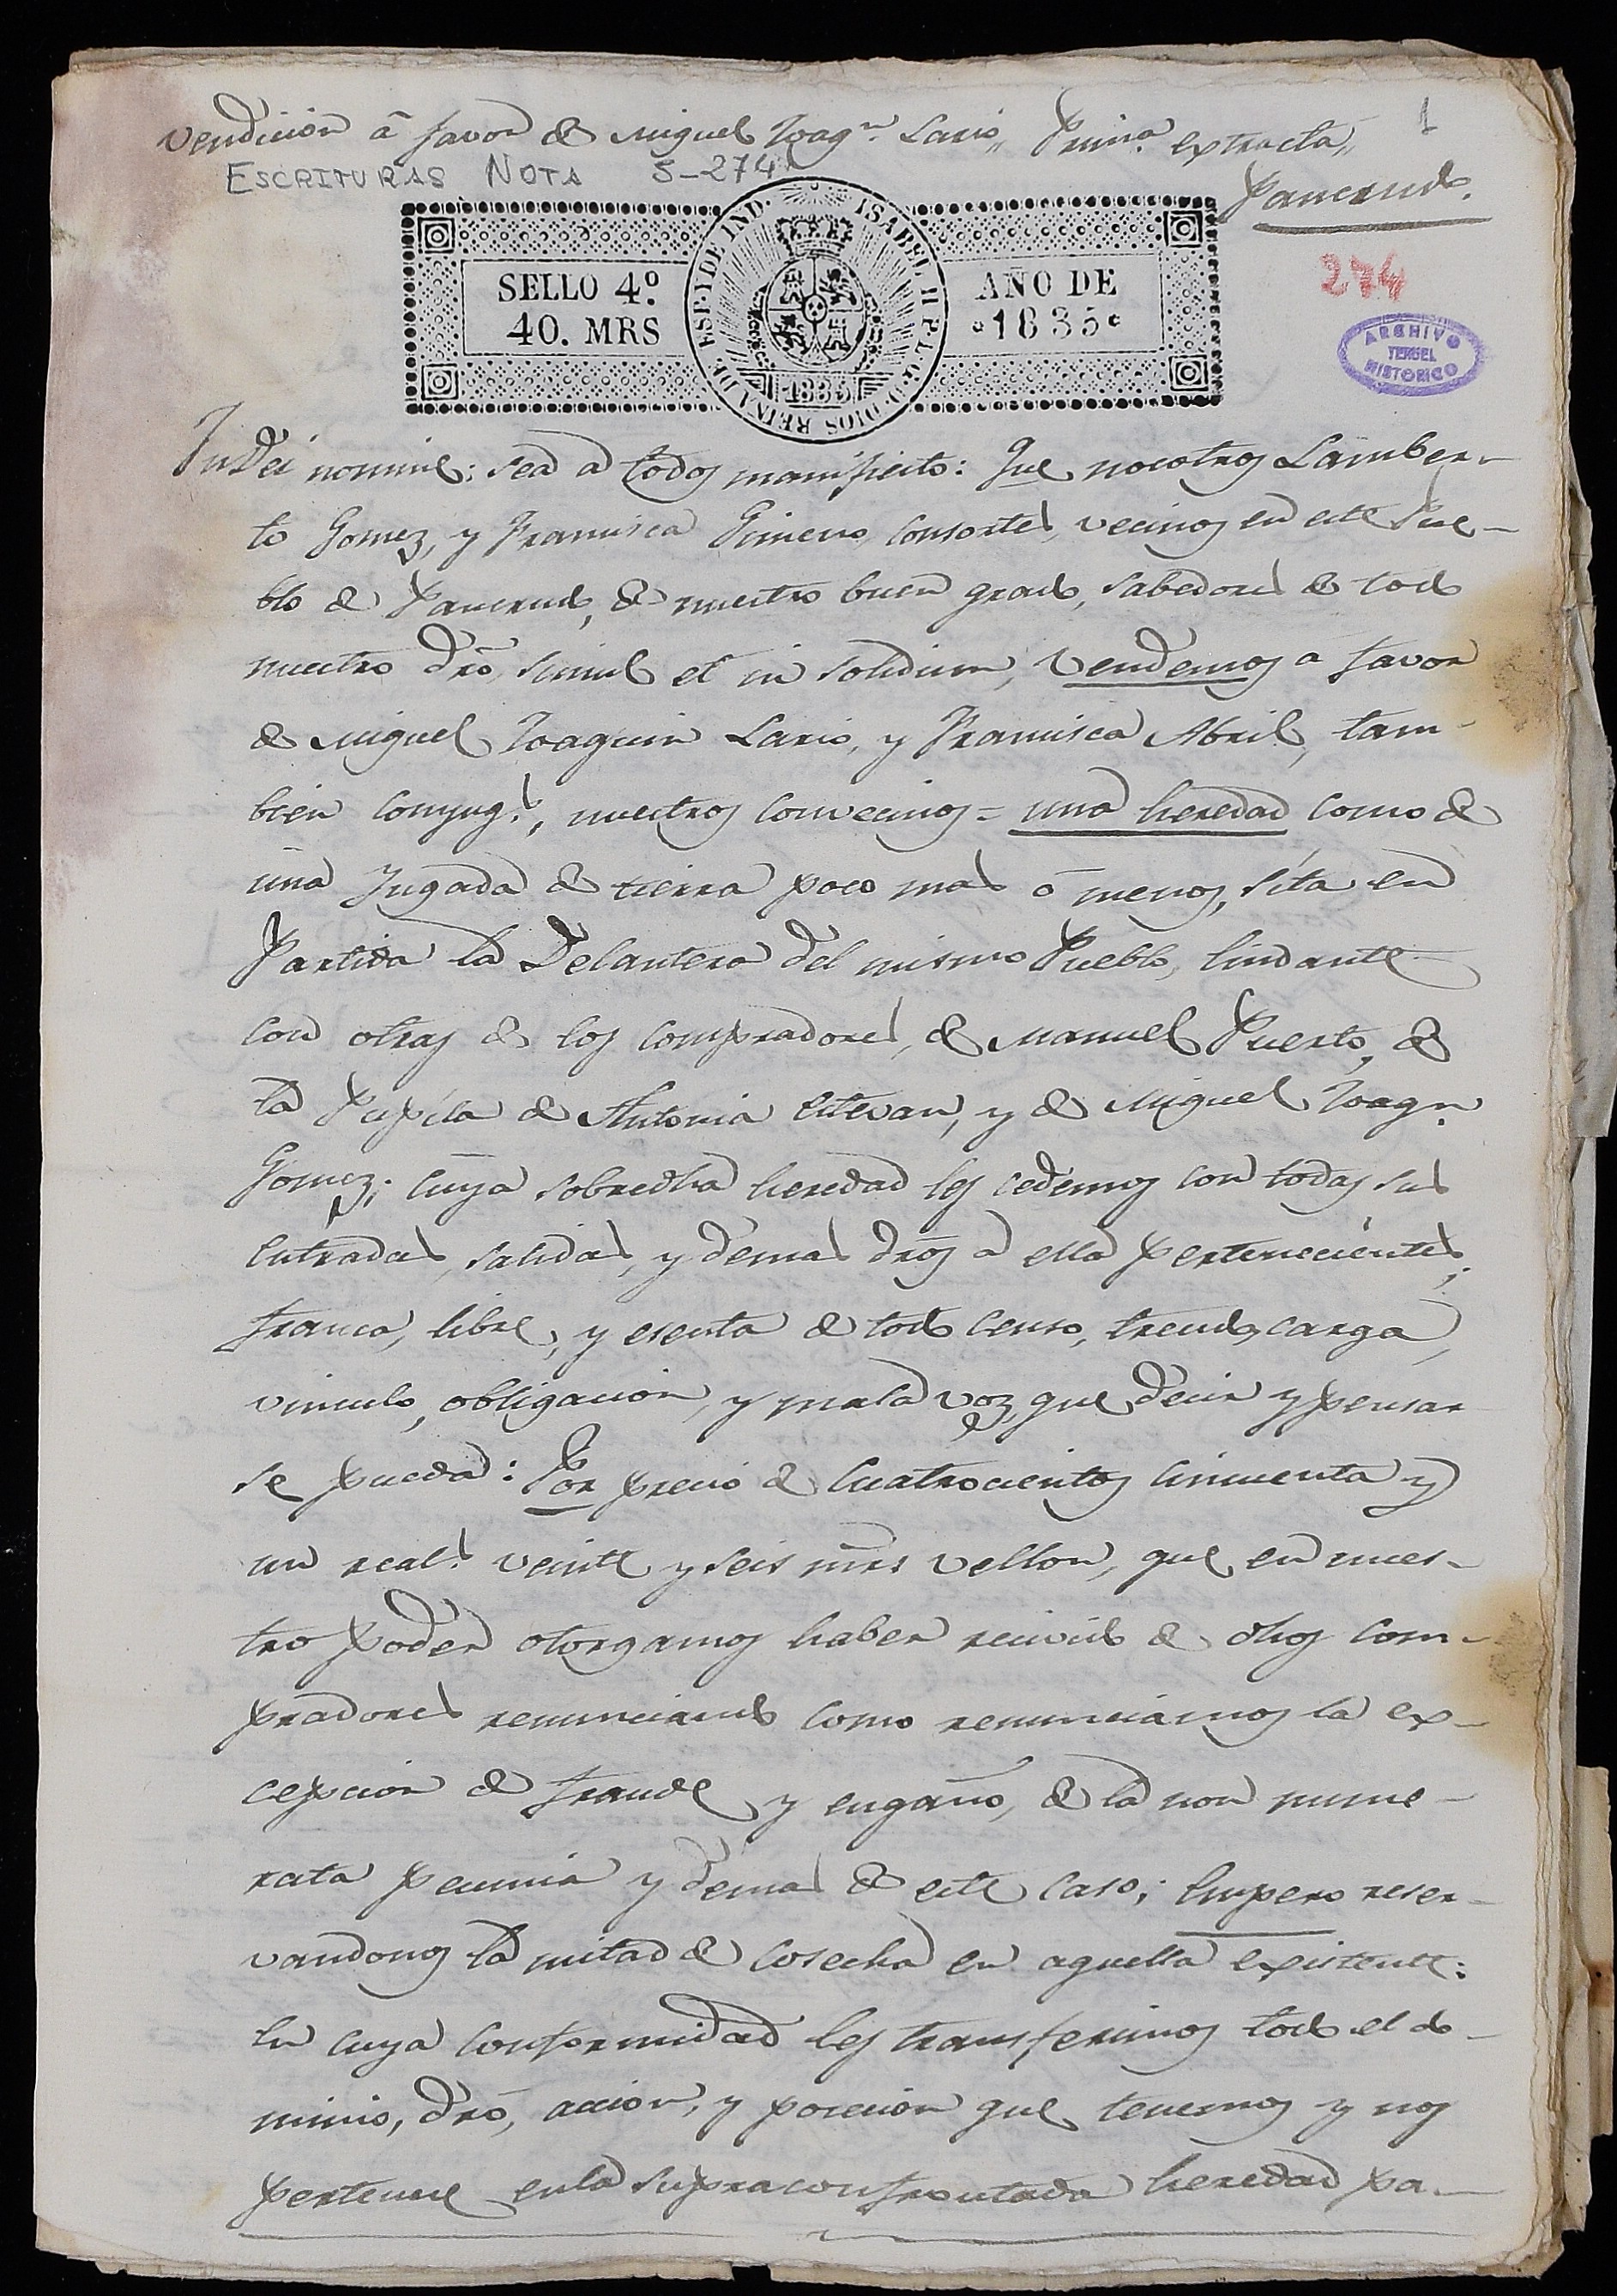 Vendicion á favor de Miguel Joaqn. Lario,, Primª. extracta,,
1
ESCRITURAS NOTA S-274
Pancrudo.
274
SELLO 4º.
40. MRS
AÑO DE
1835
ISABEL II P. L. G. D. DIOS REINA DE ESP. Y DE IND.
1835
ARCHIVO
TERUEL
HISTORICO
In Dei nomine: sea a todos manifiesto: Que nosotros Lamber-
to Gomez, y Francisca Gimeno, consortes, vecinos en este Pue-
blo de Pancrudo, de nuestro buen grado, sabedores de todo
nuestro dro, simul et in solidum, Vendemos a favor
de Miguel Joaquin Lario, y Francisca Abril, tam-
bien conyugs., nuestros convecinos = una heredad como de
una Jugada de tierra poco mas ó menos, sita en
Partida la Delantera del mismo Pueblo, lindante
con otras de los compradores, de Manuel Puerto, de
la Pupila de Antonia Estevan, y de Miguel Joaqn.
Gomez; cuya sobredha heredad les cedemos con todas sus
entradas, salidas, y demas dros a ella pertenecientes;
franca, libre, y esenta de todo censo, treudo, carga,
vinculo, obligacion, y mala voz, que decir y pensar
se pueda: Por precio de cuatrocientos cincuenta y
un reals. veinte y seis mrs vellon, que en nues-
tro poder otorgamos haber recivido de dhos com-
pradores renunciando como renunciamos la ex-
cepcion de fraude y engaño, de la non nume-
rata pecunia y demas de este caso; Empero reser-
vandonos la mitad de cosecha en aquella existente:
En cuya conformidad les transferimos todo el do-
minio, dro, accion, y posecion que tenemos y nos
pertenece en la supraconfrontada heredad pa-